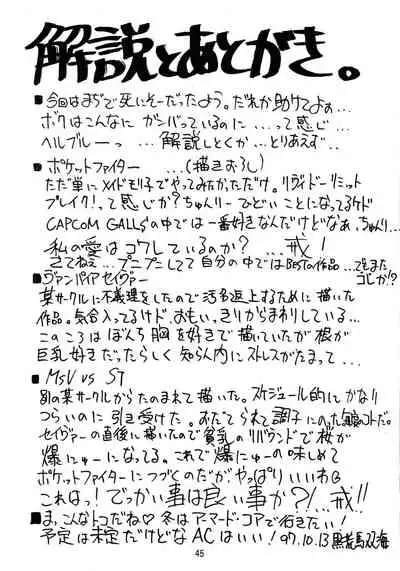 解説とあとがき。
■今回はまぢで死にそーだったよう。だれか助けてよぉ…
ボクはこんなに ガンバっているのに …って感じ…
ヘルプルーっ …解説しとくか…とりあえず…
■ポケットファイター …(描きおろし)
ただ単にメイドモリ子でやってみたかっただけ。リヴィドーリミット
ブレイク!って感じか?ちゅんりーひどいことになってるケド
CAPCOM GALLSの中では一番好きなんだけどなぁ、ちゅんりー…
私の愛はコワしているのか? …戒!
さてねぇ…プニプニしてて自分の中ではBestの作品…でもまた
コレか!?
■ヴァンパイアセイヴァー
某サークルに不義理をしたので汚名返上するために描いた
作品。気合入ってるけど、おもいっきりからまわりしている…
このころはぼんち胸を好きで描いていたが根が
巨乳好きだったらしく知らん内にストレスがたまって…
■MSV VS ST
別の某サークルからたのまれて描いた。スケジュール的にかなり
つらいのに引き受けた。おだてられて調子にのった
セイヴァーの直後に描いたので貧乳のリバウンドで桜が
爆にゅーになってる。これで爆にゅーの味しめて
ポケットファイターにつづくのだが、やっぱりいいわ
これはっ!でっかい事は良い事か?!…戒!!
■ま、こんなトコだね♡冬はアーマード・コアで行きたい!
予定は未定だけどなACはいい!'97.10.13
45